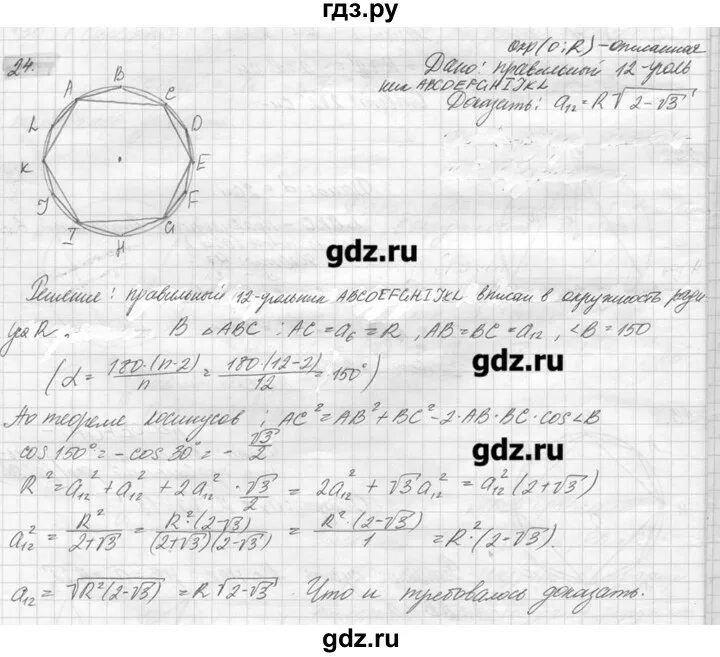 гдз.ру
24.
окр(O;R) - описанная
Дано: правильный 12-уголь
ник ABCDEFGHIJKL
Доказать: a₁₂ = R√(2-√3)
A B C D E F G H I J K L
gdz.ru
Решение: правильный 12-угольник ABCDEFGHIJKL вписан в окружность ради
уса R. В △ABC: AC = a₆ = R, AB = BC = a₁₂, ∠B = 150
(α = 180·(n-2)/n = 180·(12-2)/12 = 150°)
По теореме косинусов: AC² = AB² + BC² - 2·AB·BC·cos∠B
cos 150° = -cos 30° = -√3/2
R² = a₁₂² + a₁₂² + 2a₁₂²·√3/2 = 2a₁₂² + √3a₁₂² = a₁₂²(2+√3)
a₁₂² = R²/(2+√3) = R²·(2-√3)/((2+√3)(2-√3)) = R²·(2-√3)/1 = R²·(2-√3).
a₁₂ = √(R²(2-√3)) = R√(2-√3). Что и требовалось доказать.
gdz.ru
gdz.ru